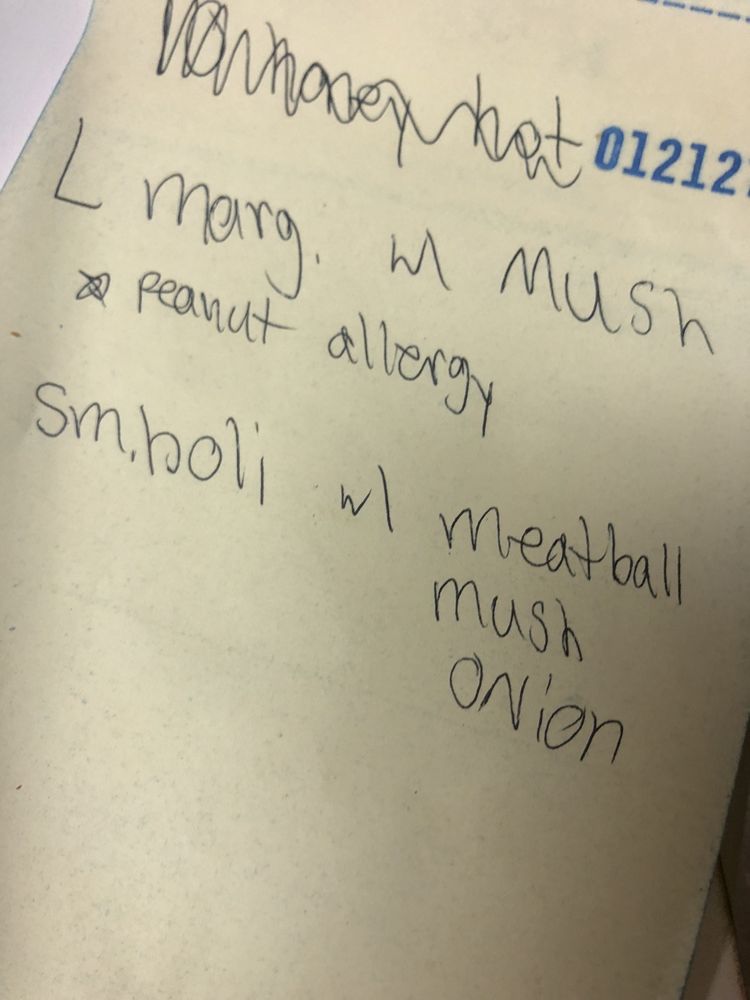 honey hot 01212
L marg. w/ MUSh
* peanut allergy
Sm. boli w/ meatball
mush
ONion